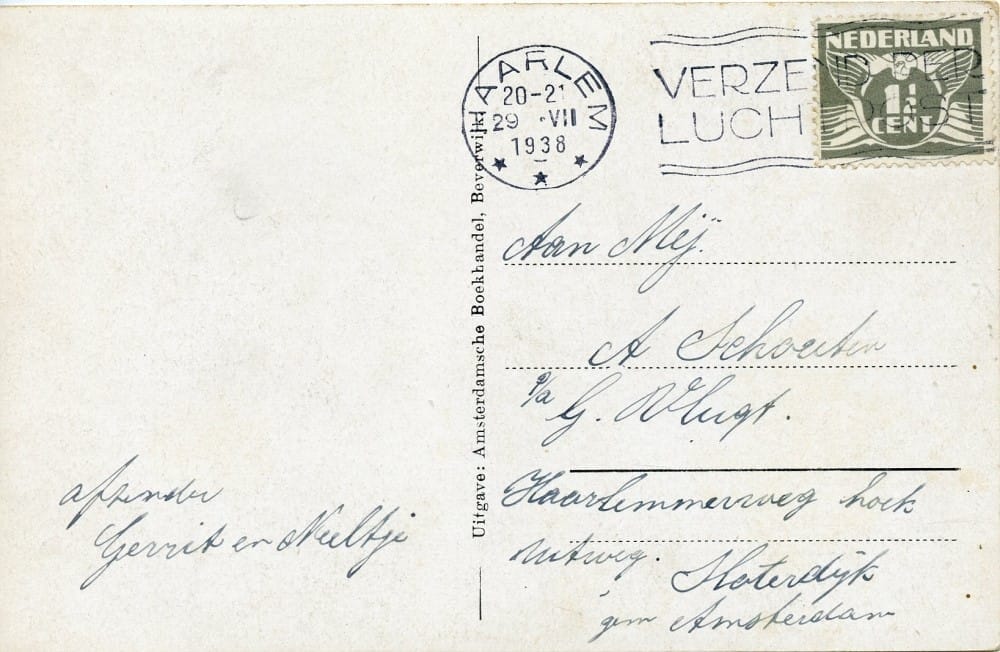 HAARLEM
20-21
29 ·VII
1938
VERZEND PER
LUCHTPOST
NEDERLAND
1½
CENT
Uitgave: Amsterdamsche Boekhandel, Beverwijk.
Aan Mej.
A Schouten
p/a
G. Vlugt.
Haarlemmerweg hoek
Sloterdijk
gem Amsterdam
afzender
Gerrit en Neeltje